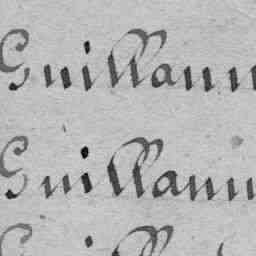 Guillaum
Guillaum